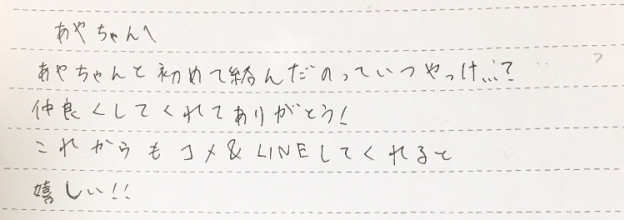 あやちゃんへ
あやちゃんと初めて絡んだのっていつやっけ…?
仲良くしてくれてありがとう!
これからもコメ&LINEしてくれると
嬉しい!!